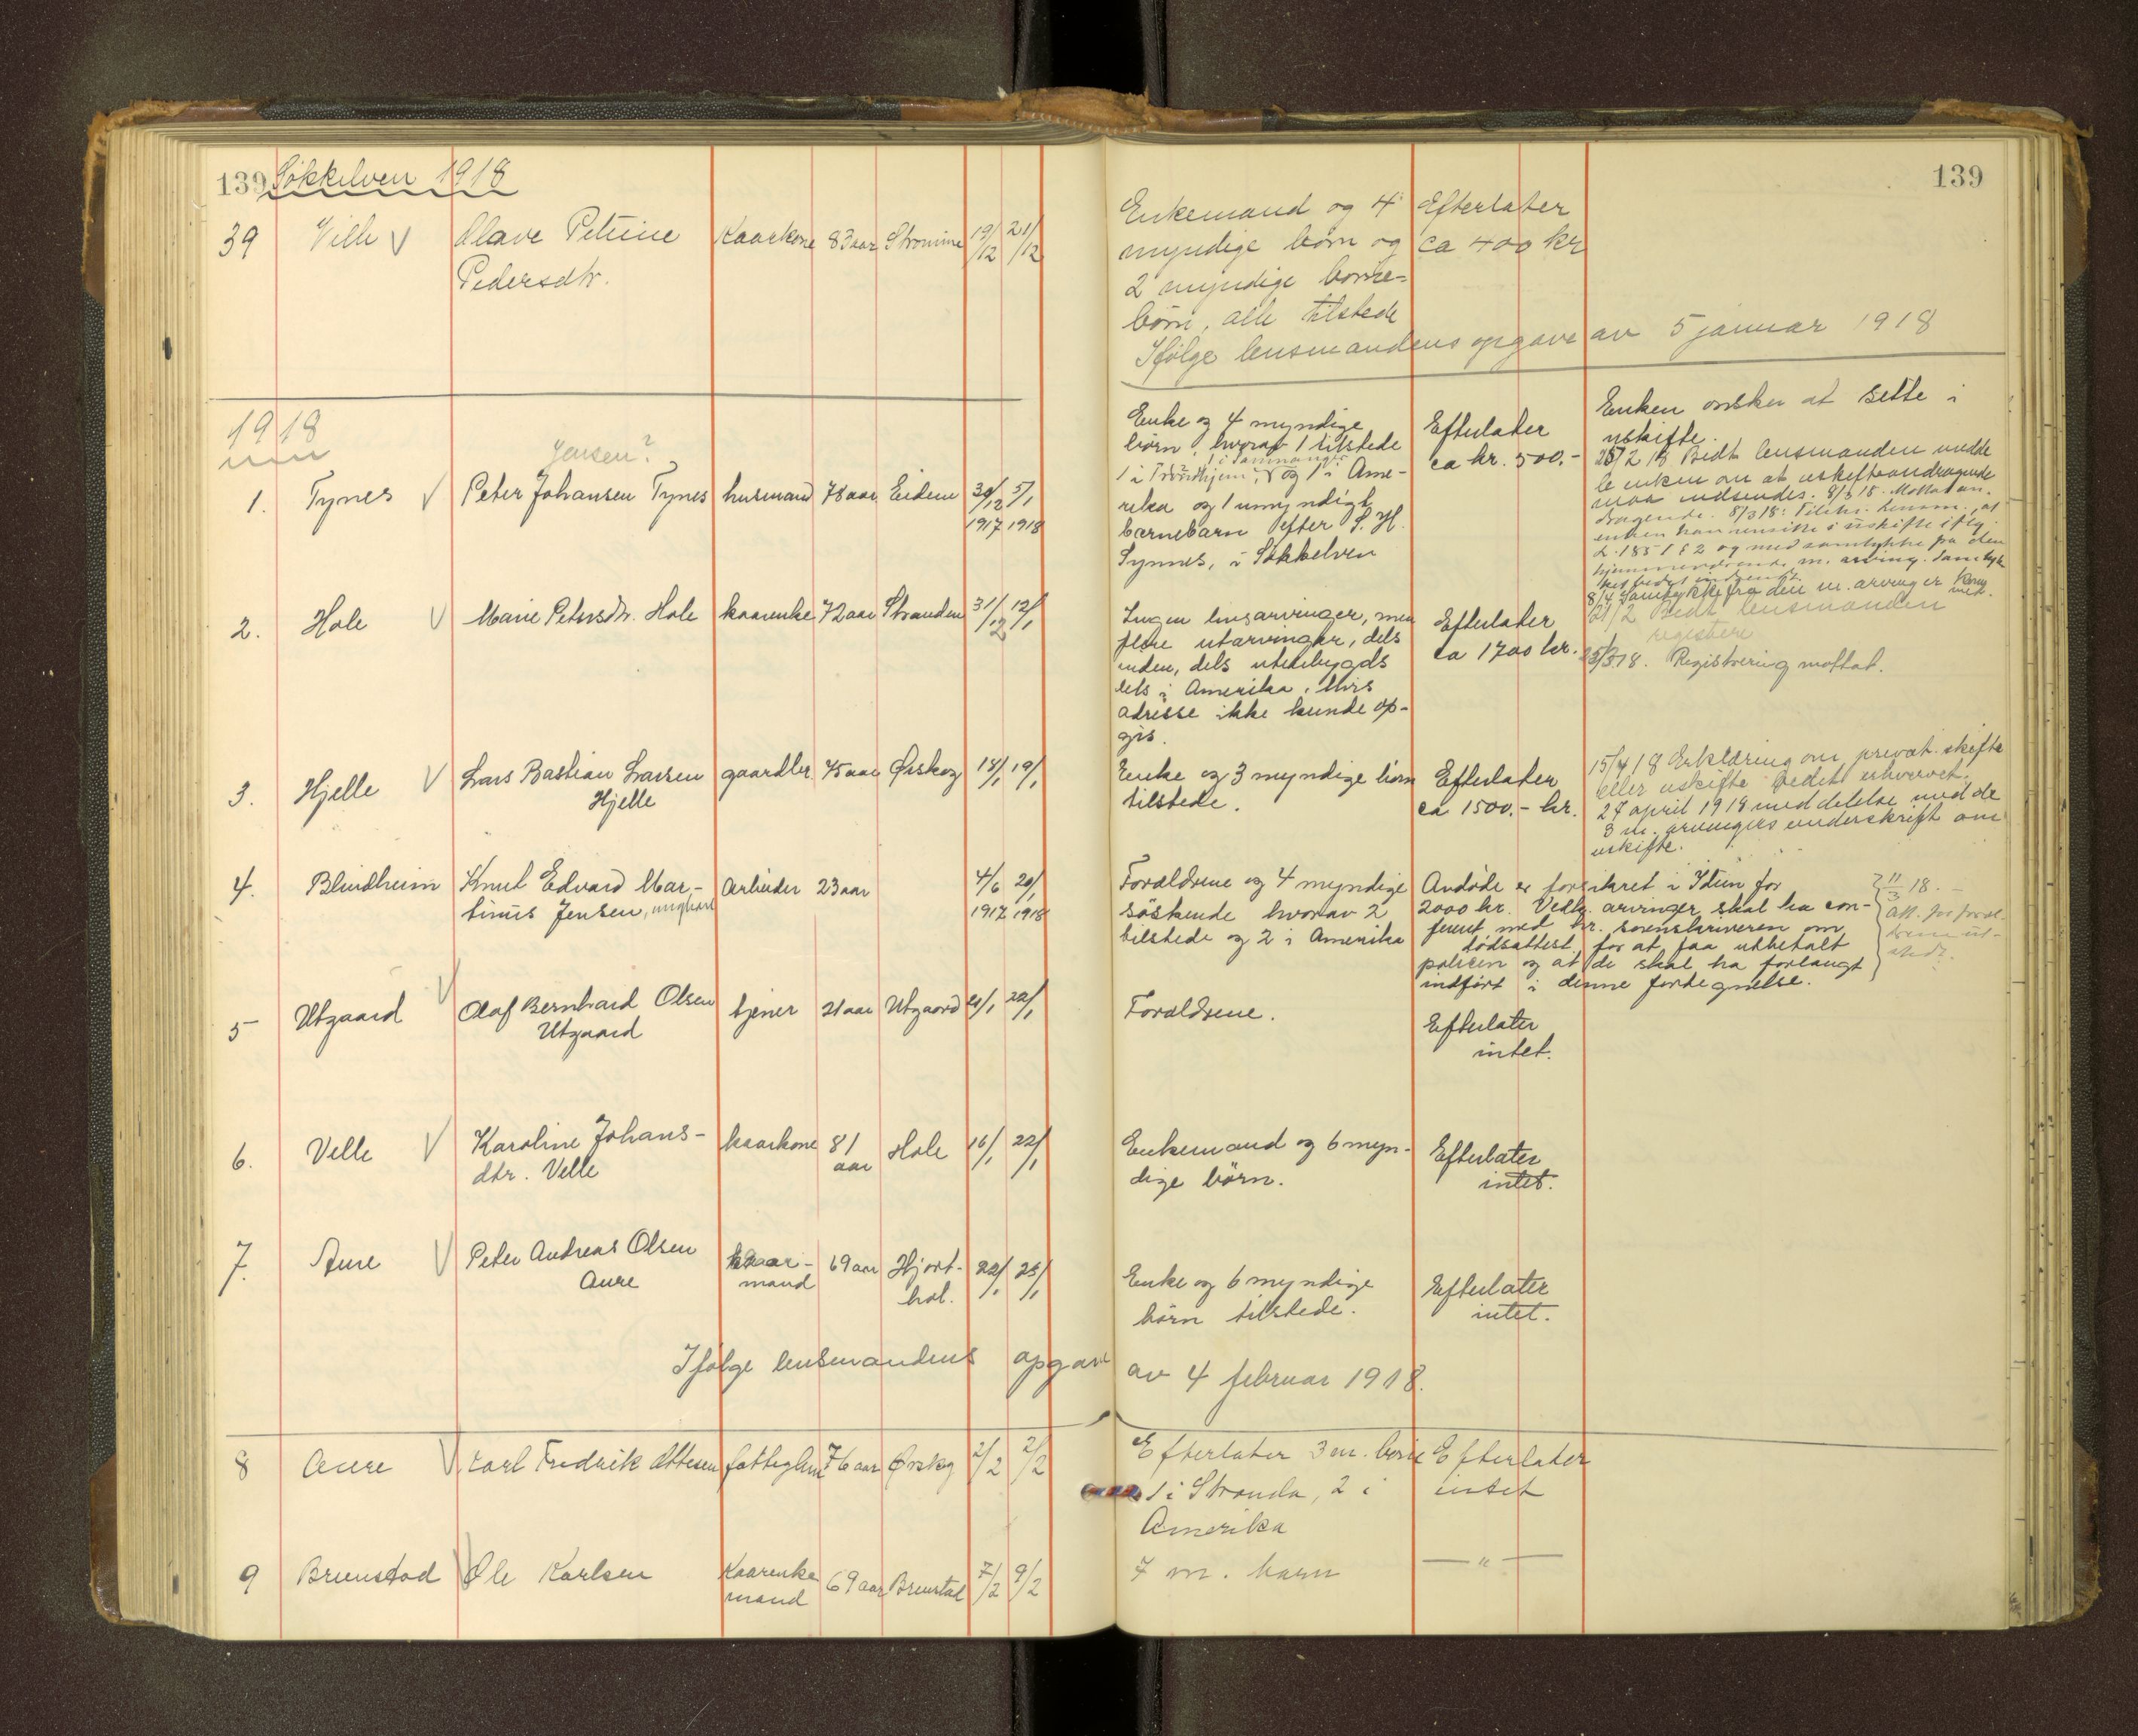 139 Søkkelven 1918
139
39 Velle V Olave Petrine Kaarkone 83 aar Strømme 19/12 21/12
Pedersdtr.
Enkemand og 4 Efterlater
myndige børn og ca 400 kr
2 myndige børne-
børn, alle tilstede
Ifølge lensmandens opgave av 5 januar 1918
1918
Jensen?
1. Tynes V Peter Johansen Tynes husmand 78 aar Eidem 30/12 5/1
1917 1918
Enke og 4 myndige Efterlater
børn, hvorav 1 tilstede ca kr. 500.-
1 i Trondhjem, og 1 i Ame-
rika og 1 umyndigt
barnebarn efter S. H.
Synnes, i Søkkelven
Enken ønsker at sitte i
uskifte.
25/2 18 Bedt lensmanden medde
le enken om at uskifteandragende
maa indsendes. 8/3 18. Mottat an-
dragende. 8/3 18: Tilskr. lensm., at
enken kan sitte i uskifte iflg.
L. 1851 § 2 og med samtykke fra den
hjemmeværende m. arving. Samtyk
ket bedes indsendt.
8/4 Samtykke fra den m. arvinger kom
2. Hole V Marie Petersdtr. Hole kaarenke 72 aar Stranden 31/12 12/1
Ingen livsarvinger, men Efterlater
flere utarvinger, dels ca 1700 kr.
inden, dels utenbygds
dels i Amerika, hvis
adresse ikke kunde op-
gis.
21/2 Bedt lensmanden
registere
25/3 18. Registrering mottat.
3. Hjelle V Lars Bastian Larsen gaardbr 75 aar Ørskog 18/1 19/1
Hjelle
Enke og 3 myndige børn Efterlater
tilstede. ca 1500.- kr.
15/4 18 Erklæring om privat skifte
eller uskifte bedet erhvervet.
27 april 1918 meddelelse med de
3 m. arvingers underskrift om
uskifte.
4. Blindheim Knut Edvard Mar- Arbeider 23 aar 4/6 20/1
tinus Jensen, ungkarl 1917 1918
Forældrene og 4 myndige
søskende hvorav 2
tilstede og 2 i Amerika
Avdøde er forsikret i Idun for
2000 kr. Vedk. arvinger skal ha con-
ferert med hr. sorenskriveren om
dødsattest for at faa utbetalt
policen og at de skal ha forlangt
indført i denne fortegnelse.
11/3 18. -
Att. for foræl-
drene ut-
stedt.
5 Utgaard V Olaf Bernhard Olsen tjener 21 aar Utgaard 21/1 22/1
Utgaard
Forældrene. Efterlater
intet.
6. Velle V Karoline Johans- kaarkone 81 aar Hole 16/1 22/1
dtr. Velle
Enkemand og 6 myn- Efterlater
dige børn. intet.
7. Aure V Peter Andreas Olsen kaar- 69 aar Hjort- 22/1 25/1
Aure mand hol.
Enke og 6 myndige Efterlater
børn tilstede. intet.
Ifølge lensmandens opgave av 4 februar 1918.
8 Aure V Karl Fredrik Ottesen fattiglem 76 aar Ørskog 2/2 2/2
Efterlater 3 m. børn Efterlater
1 i Stranda, 2 i intet
Amerika
9 Brunstad V Ole Karlsen Kaarenke 69 aar Brunstad 7/2 9/2
mand
7 m. barn — " —